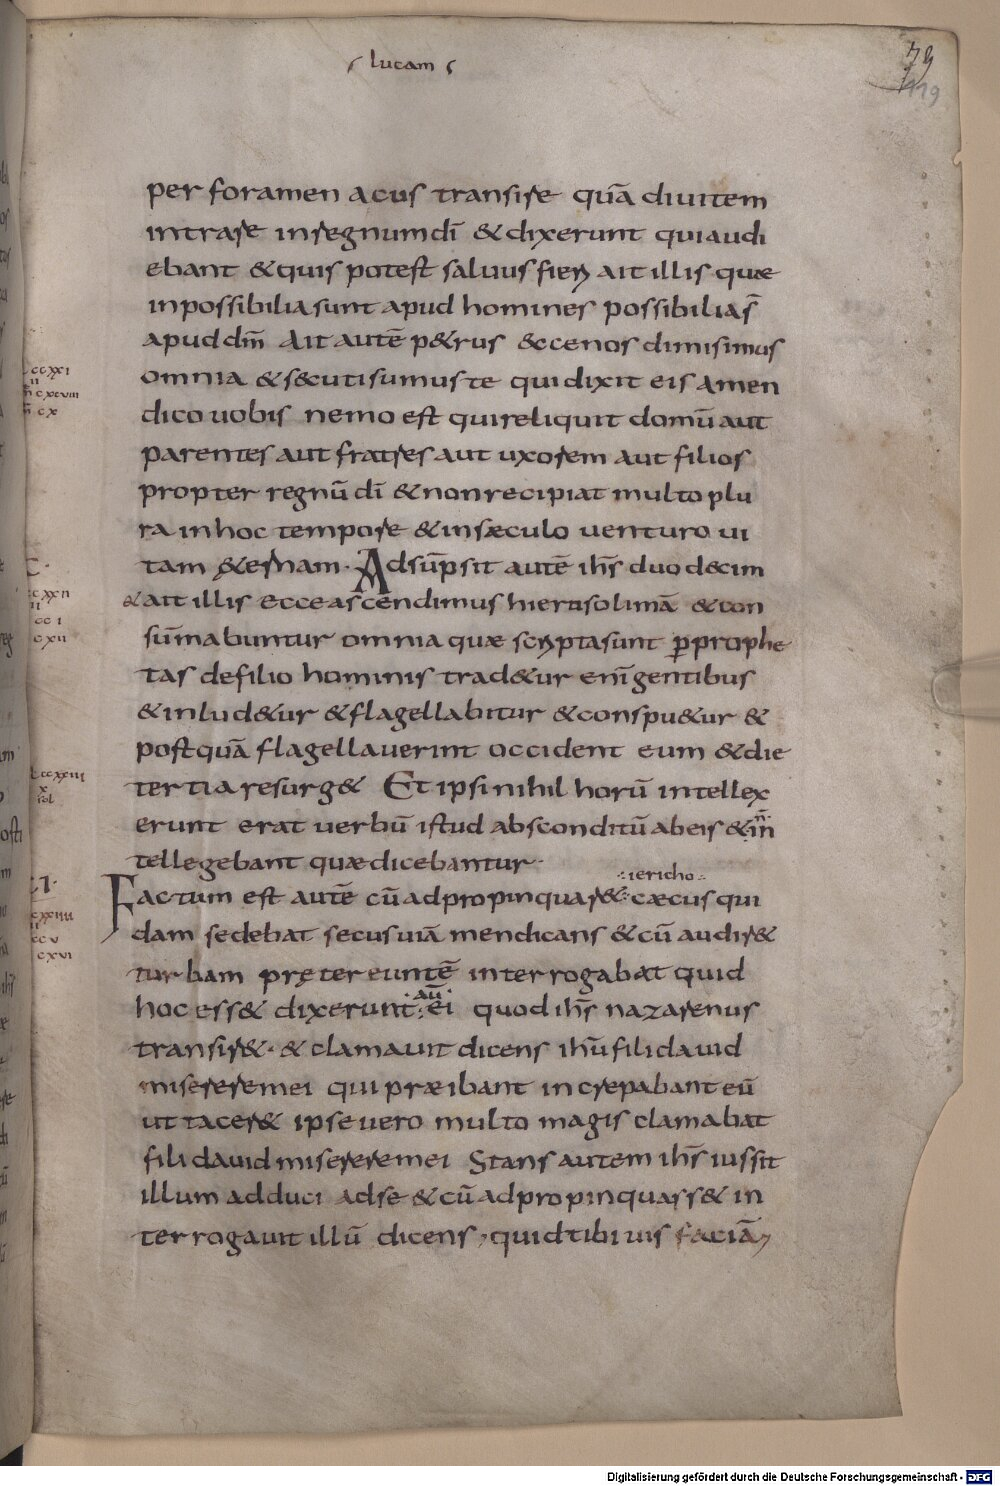 lucam
79
119
per foramen acus transire quā diuitem
intrare inregnumdī & dixerunt quiaudi
ebant & quis potest saluus fieri ait illis quae
inpossibilia sunt apud homines possibilias̄
apud dm̄ Ait autē p&rus & ecce nos dimisimus
omnia & s&cuti sumus te qui dixit eis Amen
dico uobis nemo est qui reliquit domū aut
parentes aut fratres aut uxorem aut filios
propter regnū dī & non recipiat multo plu
ra in hoc tempore & in sæculo venturo ui
tam &ernam. Adsūpsit autē ihs̄ duodecim
& ait illis ecce ascendimus hierusolimā & con
sūmabuntur omnia quæ scripta sunt ꝑ prophe
tas de filio hominis trad&ur enī gentibus
& inlud&ur & flagellabitur & conspu&ur &
postquā flagellauerint occident eum & die
tertia resurg& Et ipsi nihil horū intellex
erunt erat uerbū istud absconditū ab eis & n̄ in
tellegebant quæ dicebantur.
iericho
Factum est autē cū adpropinquar& cæcus qui
dam sedebat secus uiā mendicans & cū audir&
turbam prętereuntē interrogabat quid
hoc ess& dixerunt aū ei quod ihs̄ nazarenus
transir& & clamauit dicens ihū fili dauid
miserere mei qui præibant increpabant eū
ut tacer& ipse uero multo magis clamabat
fili dauid miserere mei Stans autem ihs̄ iussit
illum adduci ad se & cū adpropinquass& in
terrogauit illū dicens, quid tibi uis faciā
Digitalisierung gefördert durch die Deutsche Forschungsgemeinschaft - DFG